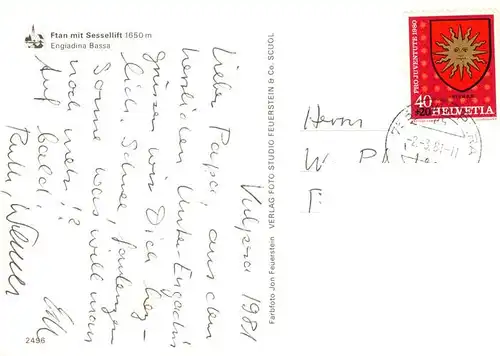 Ftan mit Sessellift 1650 m
Engiadina Bassa
Vulpera 1981
Lieber Papa, aus dem
herrlichen Unter-Engadin
grüssen wir Dich herz-
lich. Schnee,
Sonne was will man
noch mehr!?
Auf bald!
Ruth, Werner
2496
Farbfoto Jon Feuerstein VERLAG FOTO STUDIO FEUERSTEIN & Co. SCUOL
PRO JUVENTUTE 1980
40
+20
HELVETIA
-2.-3.81-11
Herrn
W